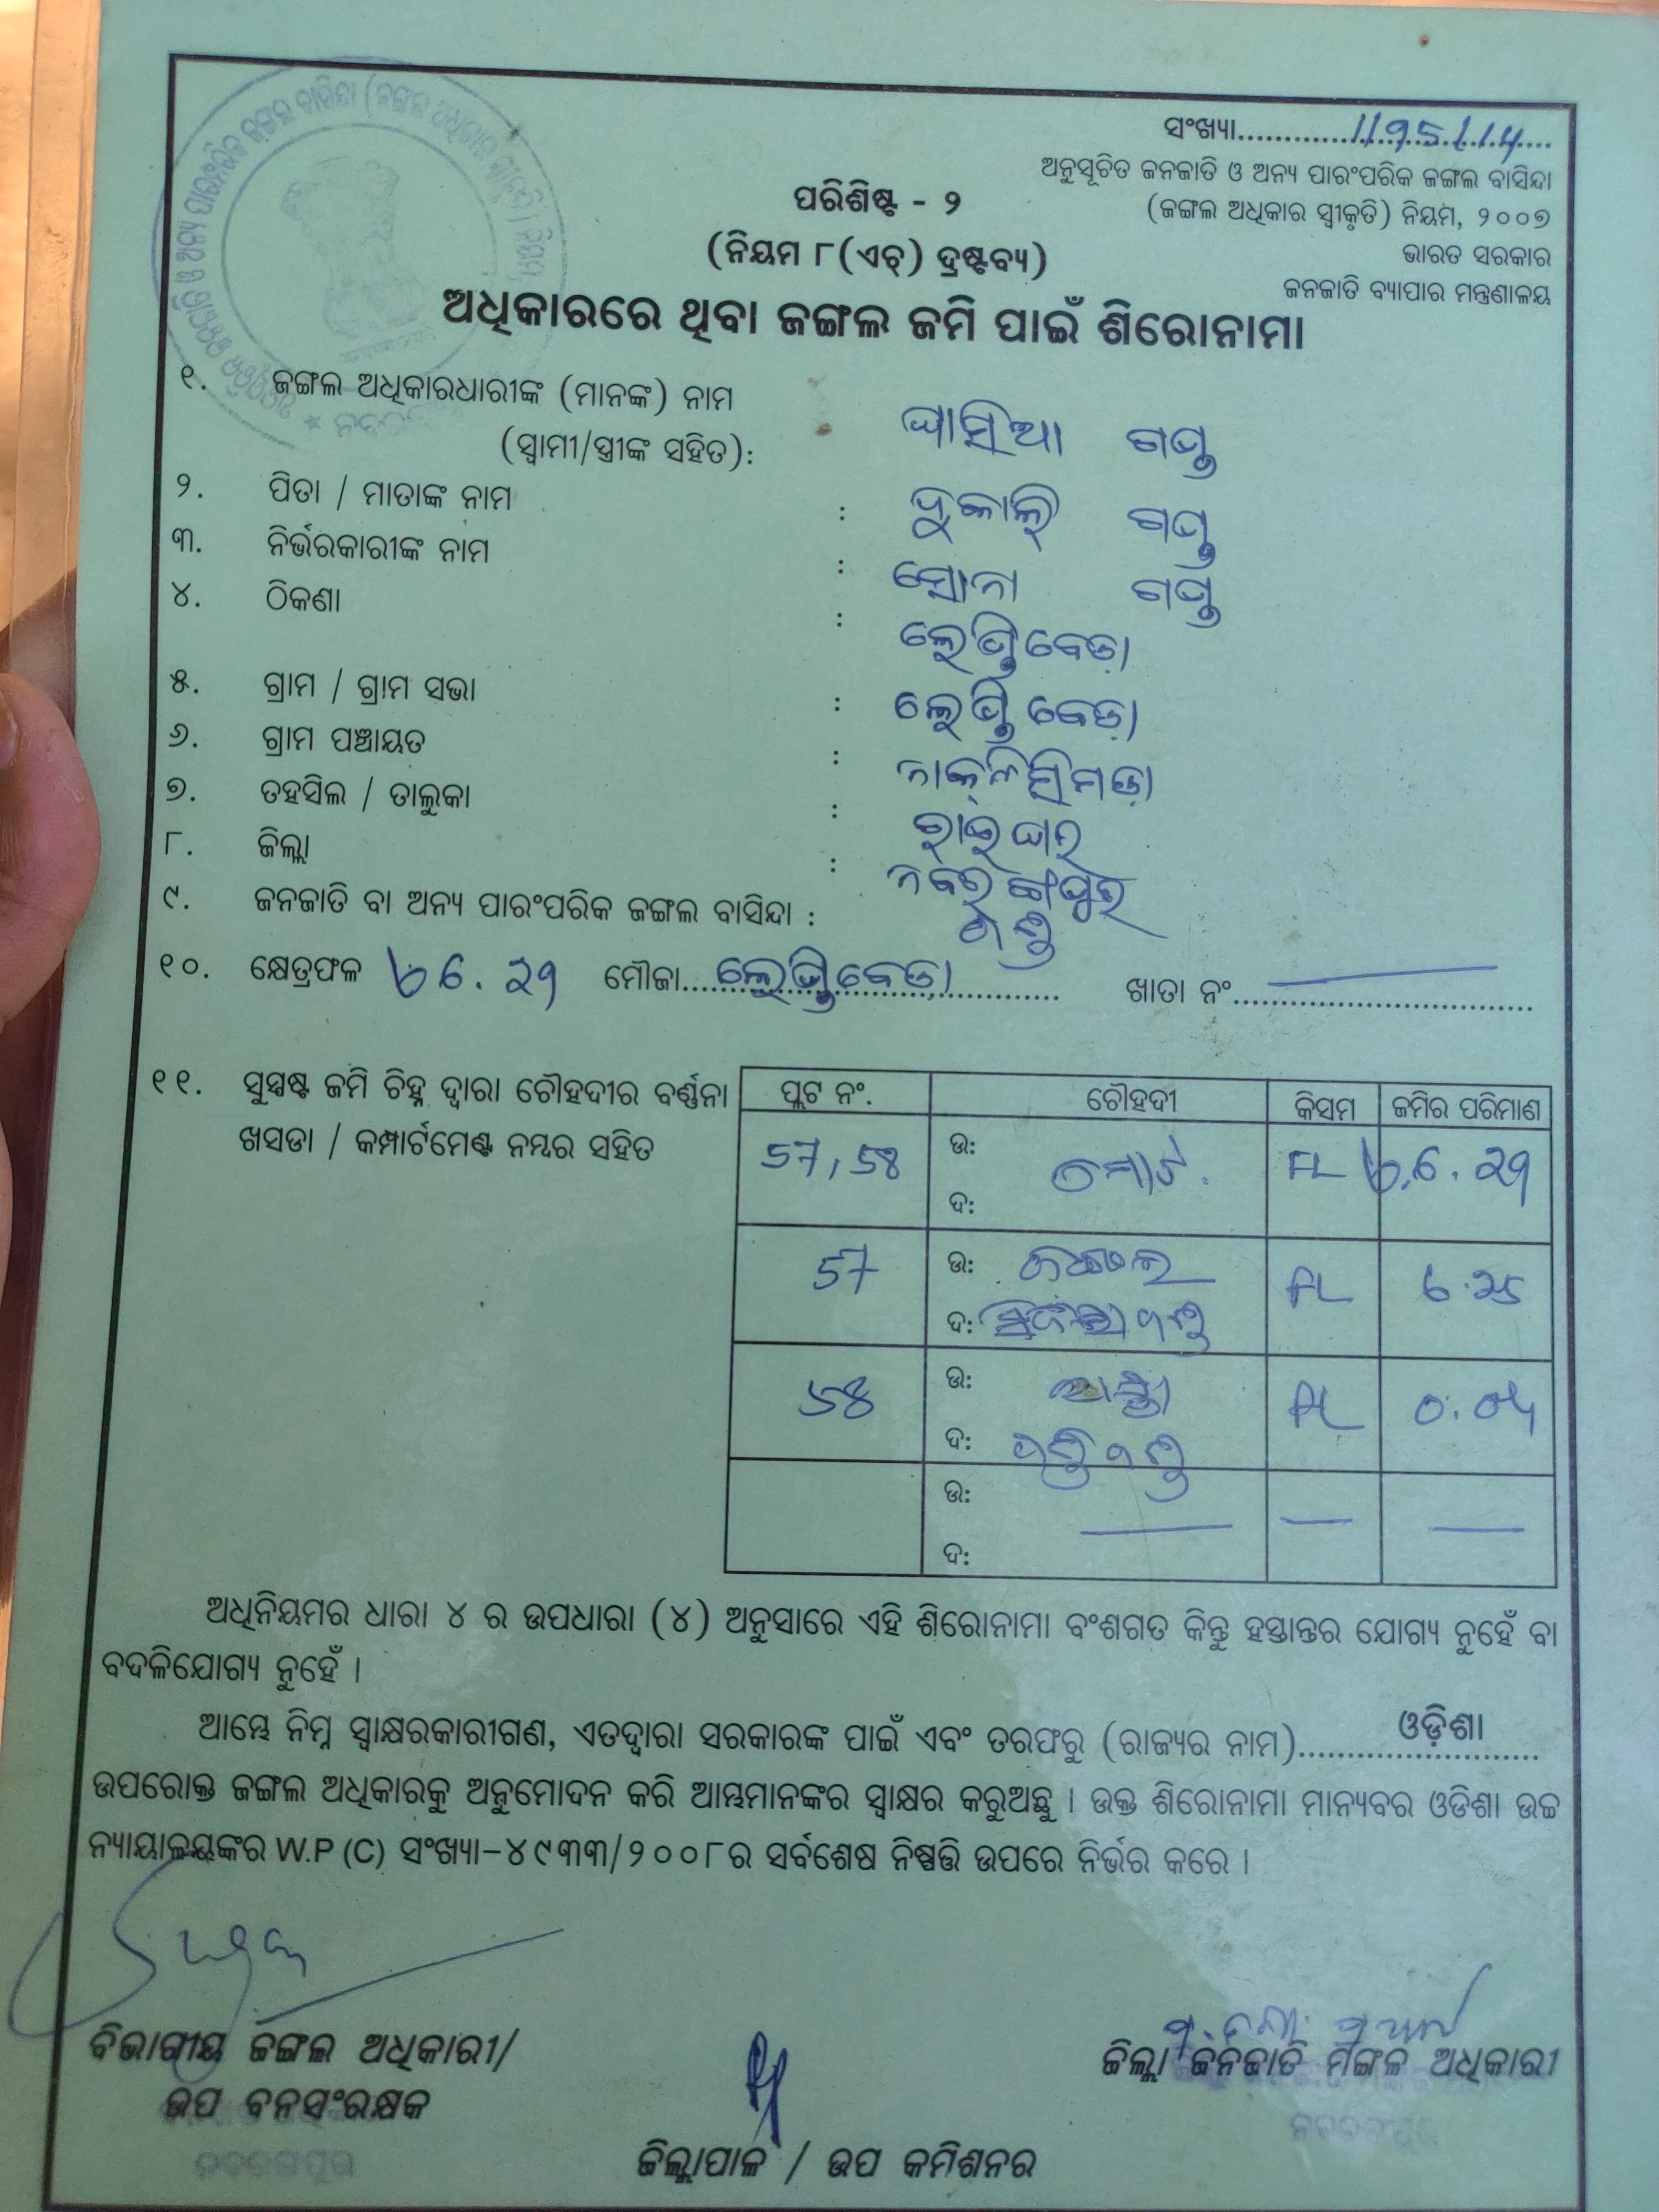 ସଂଖ୍ୟା
ଅନୁସୂଚିତ ଜନଜାତି ଓ ଅନ୍ୟ ପାରଂପରିକ ଜଙ୍ଗଲ ବାସିନ୍ଦା
(ଜଙ୍ଗଲ ଅଧିକାର ସ୍ୱୀକୃତି) ନିୟମ, ୨୦୦୭
ଭାରତ ସରକାର
ଜନଜାତି ବ୍ୟାପାର ମନ୍ତ୍ରଣାଳୟ
ପରିଶିଷ୍ଟ - ୨
(ନିୟମ ୮(ଏଚ୍) ଦ୍ରଷ୍ଟବ୍ୟ)
ଅଧିକାରରେ ଥିବା ଜଙ୍ଗଲ ଜମି ପାଇଁ ଶିରୋନାମା
୧. ଜଙ୍ଗଲ ଅଧିକାରଧାରୀଙ୍କ (ମାନଙ୍କ) ନାମ
(ସ୍ୱାମୀ/ସ୍ତ୍ରୀଙ୍କ ସହିତ): ଘାସିଆ ଗଣ୍ଡ
୨. ପିତା / ମାତାଙ୍କ ନାମ : ଦୁକାଲି ଗଣ୍ଡ
୩. ନିର୍ଭରକାରୀଙ୍କ ନାମ : ସୋନା ଗଣ୍ଡ
୪. ଠିକଣା :
୫. ଗ୍ରାମ / ଗ୍ରାମ ସଭା :
୬. ଗ୍ରାମ ପଞ୍ଚାୟତ :
୭. ତହସିଲ / ତାଲୁକା : ରାଇଘର
୮. ଜିଲ୍ଲା : ନବରଙ୍ଗପୁର
୯. ଜନଜାତି ବା ଅନ୍ୟ ପାରଂପରିକ ଜଙ୍ଗଲ ବାସିନ୍ଦା :
୧୦. କ୍ଷେତ୍ରଫଳ ମୌଜା ଖାତା ନଂ
୧୧. ସୁସ୍ପଷ୍ଟ ଜମି ଚିହ୍ନ ଦ୍ୱାରା ଚୌହଦୀର ବର୍ଣ୍ଣନା
ଖସଡା / କମ୍ପାର୍ଟମେଣ୍ଟ ନମ୍ବର ସହିତ
ପ୍ଲଟ ନଂ. ଚୌହଦୀ କିସମ ଜମିର ପରିମାଣ
57, 58 ଉ: FL
ଦ:
57 ଉ: ଜଙ୍ଗଲ FL
ଦ:
58 ଉ: FL
ଦ:
ଉ:
ଦ:
ଅଧିନିୟମର ଧାରା ୪ ର ଉପଧାରା (୪) ଅନୁସାରେ ଏହି ଶିରୋନାମା ବଂଶଗତ କିନ୍ତୁ ହସ୍ତାନ୍ତର ଯୋଗ୍ୟ ନୁହେଁ ବା
ବଦଳିଯୋଗ୍ୟ ନୁହେଁ ।
ଆମ୍ଭେ ନିମ୍ନ ସ୍ୱାକ୍ଷରକାରୀଗଣ, ଏତଦ୍ୱାରା ସରକାରଙ୍କ ପାଇଁ ଏବଂ ତରଫରୁ (ରାଜ୍ୟର ନାମ) ଓଡ଼ିଶା
ଉପରୋକ୍ତ ଜଙ୍ଗଲ ଅଧିକାରକୁ ଅନୁମୋଦନ କରି ଆମ୍ଭମାନଙ୍କର ସ୍ୱାକ୍ଷର କରୁଅଛୁ । ଉକ୍ତ ଶିରୋନାମା ମାନ୍ୟବର ଓଡିଶା ଉଚ୍ଚ
ନ୍ୟାୟାଳୟଙ୍କର W.P (C) ସଂଖ୍ୟା-୪୯୩୩/୨୦୦୮ର ସର୍ବଶେଷ ନିଷ୍ପତ୍ତି ଉପରେ ନିର୍ଭର କରେ ।
ବିଭାଗୀୟ ଜଙ୍ଗଲ ଅଧିକାରୀ/
ଉପ ବନସଂରକ୍ଷକ
ଜିଲ୍ଲା ଜନଜାତି ମଙ୍ଗଳ ଅଧିକାରୀ
ନବରଙ୍ଗପୁର
ନବରଙ୍ଗପୁର
ଜିଲ୍ଲାପାଳ / ଉପ କମିଶନର